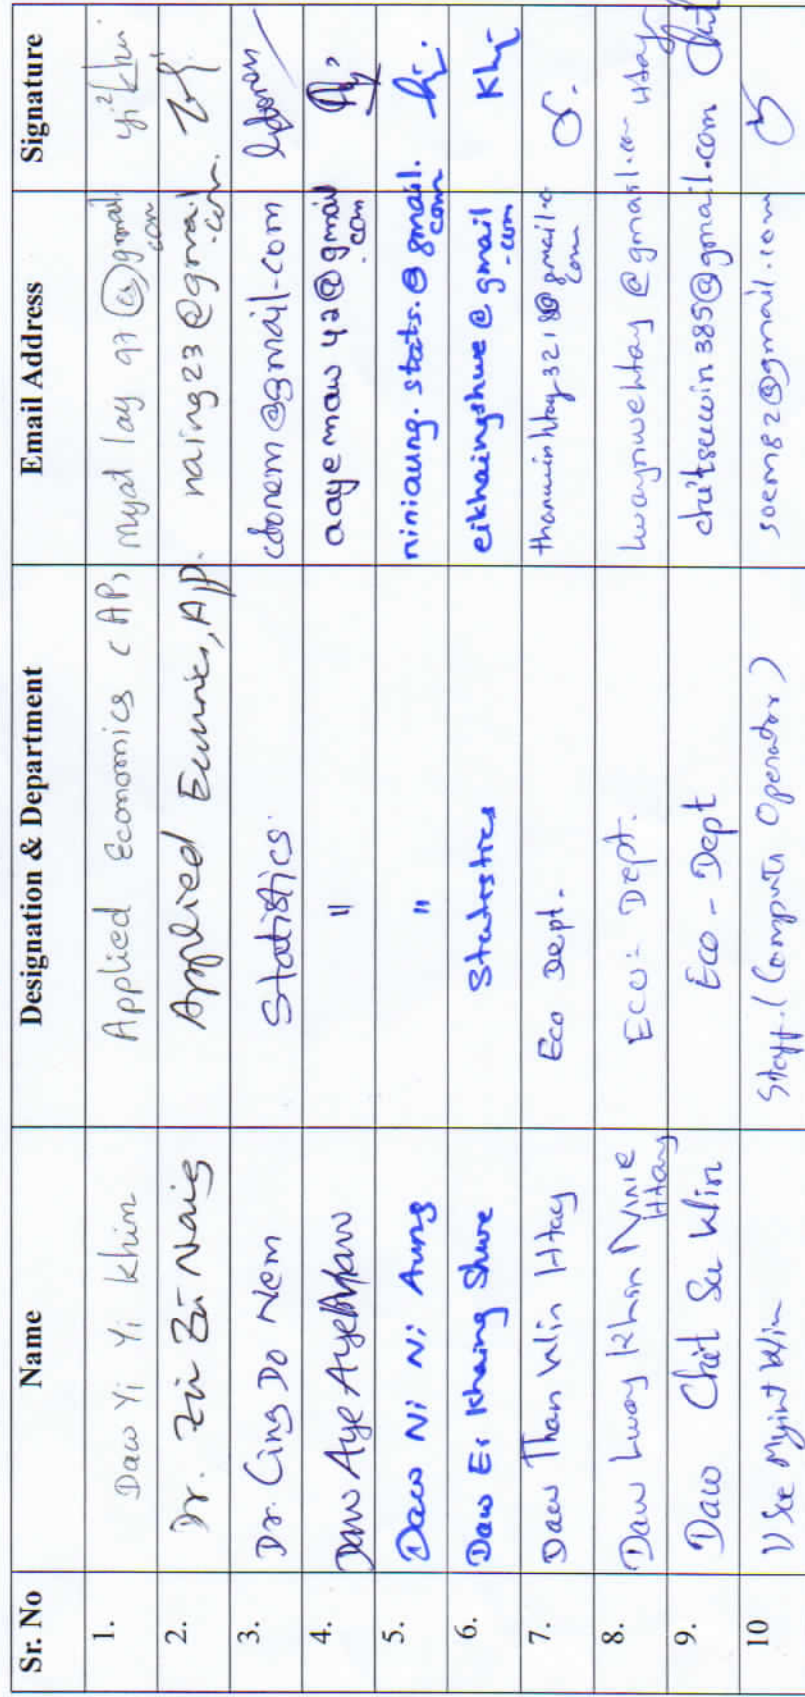 Sr. No Name Designation & Department Email Address Signature
1. Daw Yi Yi Khin Applied Economics (AP) myat lay 97 @gmail.com yi² khin
2. Dr. Zin Zin Naing Applied Economics, A/P. naing23@gmail.com.
3. Dr. Cing Do Nem Statistics. cdonem@gmail.com
4. Daw Aye Aye Maw " aayemaw42@gmail.com
5. Daw Ni Ni Aung " niniaung.stats.@gmail.com
6. Daw Ei Khaing Shwe Statistics eikhaingshwe@gmail.com Khg
7. Daw Than Win Htay Eco Dept. thanwinhtay3218@gmail.com
8. Daw Lway Khin Nwe Htay Eco - Dept. lwaynwehtay@gmail.com Htay
9. Daw Chit Su Win Eco - Dept chitsuwin385@gmail.com Chit
10 U Soe Myint Win Staff. (Computer Operator) soem82@gmail.com